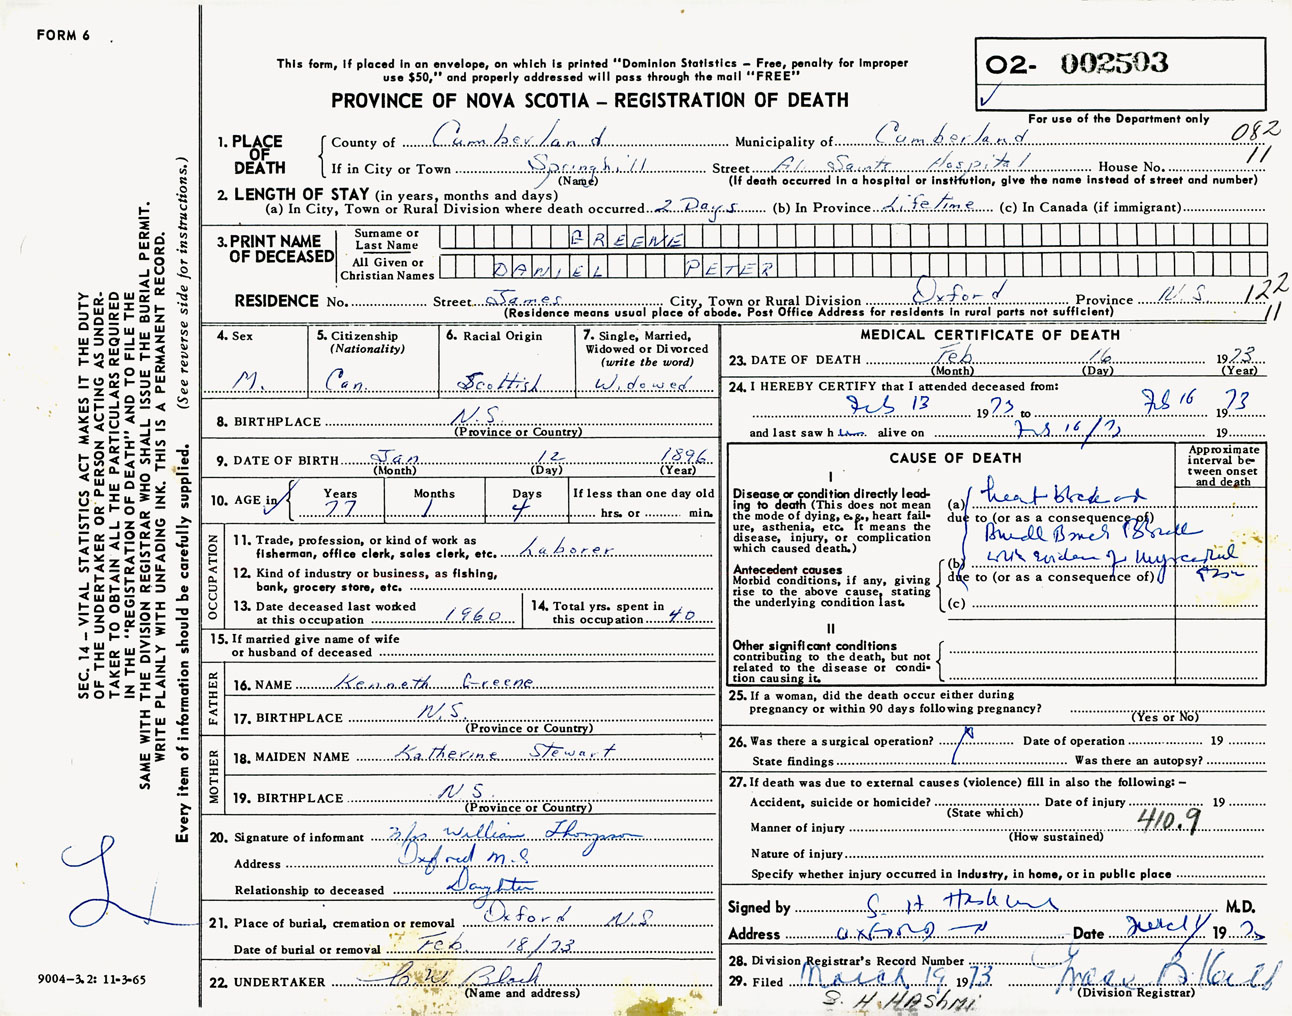 FORM 6
This form, if placed in an envelope, on which is printed "Dominion Statistics – Free, penalty for improper
use $50," and properly addressed will pass through the mail "FREE"
PROVINCE OF NOVA SCOTIA – REGISTRATION OF DEATH
O2- 002503
For use of the Department only
082
11
1. PLACE OF DEATH
County of Cumberland Municipality of Cumberland
If in City or Town Springhill Street All Saints Hospital House No.
(Name) (If death occurred in a hospital or institution, give the name instead of street and number)
2. LENGTH OF STAY (in years, months and days)
(a) In City, Town or Rural Division where death occurred 2 Days (b) In Province Lifetime (c) In Canada (if immigrant)
3. PRINT NAME OF DECEASED
Surname or Last Name GREENE
All Given or Christian Names DANIEL PETER
RESIDENCE No. Street James City, Town or Rural Division Oxford Province N.S. 122
(Residence means usual place of abode. Post Office Address for residents in rural parts not sufficient) 11
4. Sex
M.
5. Citizenship
(Nationality)
Can.
6. Racial Origin
Scottish
7. Single, Married,
Widowed or Divorced
(write the word)
Widowed
8. BIRTHPLACE N.S.
(Province or Country)
9. DATE OF BIRTH Jan 12 1896
(Month) (Day) (Year)
10. AGE in Years Months Days If less than one day old
77 1 4 hrs. or min.
OCCUPATION
11. Trade, profession, or kind of work as
fisherman, office clerk, sales clerk, etc. Laborer
12. Kind of industry or business, as fishing,
bank, grocery store, etc.
13. Date deceased last worked
at this occupation 1960
14. Total yrs. spent in
this occupation 40
15. If married give name of wife
or husband of deceased
FATHER
16. NAME Kenneth Greene
17. BIRTHPLACE N.S.
(Province or Country)
MOTHER
18. MAIDEN NAME Katherine Stewart
19. BIRTHPLACE N S.
(Province or Country)
20. Signature of informant Mrs William Thompson
Address Oxford N.S.
Relationship to deceased Daughter
21. Place of burial, cremation or removal Oxford N.S
Date of burial or removal Feb 18/73
22. UNDERTAKER
(Name and address)
MEDICAL CERTIFICATE OF DEATH
23. DATE OF DEATH Feb 16 1973
(Month) (Day) (Year)
24. I HEREBY CERTIFY that I attended deceased from:
Feb 13 1973 to Feb 16 1973
and last saw him alive on Feb 16/73 19
CAUSE OF DEATH
Approximate
interval be-
tween onset
and death
I
Disease or condition directly lead-
ing to death (This does not mean
the mode of dying, e.g., heart fail-
ure, asthenia, etc. It means the
disease, injury, or complication
which caused death.)
(a) heart block
due to (or as a consequence of)
Bundle Branch Block
Antecedent causes
Morbid conditions, if any, giving
rise to the above cause, stating
the underlying condition last.
(b) with evidence of myocardial
due to (or as a consequence of)
(c)
II
Other significant conditions
contributing to the death, but not
related to the disease or condi-
tion causing it.
25. If a woman, did the death occur either during
pregnancy or within 90 days following pregnancy?
(Yes or No)
26. Was there a surgical operation? Date of operation 19
State findings Was there an autopsy?
27. If death was due to external causes (violence) fill in also the following: –
Accident, suicide or homicide? Date of injury 19
(State which)
Manner of injury 410.9
(How sustained)
Nature of injury
Specify whether injury occurred in industry, in home, or in public place
Signed by S. H. Hashmi M.D.
Address OXFORD Date 19
28. Division Registrar's Record Number
29. Filed March 19 1973
(Division Registrar)
S. H. HASHMI
SEC. 14 – VITAL STATISTICS ACT MAKES IT THE DUTY
OF THE UNDERTAKER OR PERSON ACTING AS UNDER-
TAKER TO OBTAIN ALL THE PARTICULARS REQUIRED
IN THE "REGISTRATION OF DEATH" AND TO FILE THE
SAME WITH THE DIVISION REGISTRAR WHO SHALL ISSUE THE BURIAL PERMIT.
WRITE PLAINLY WITH UNFADING INK. THIS IS A PERMANENT RECORD.
Every item of information should be carefully supplied. (See reverse side for instructions.)
9004–3.2: 11-3-65